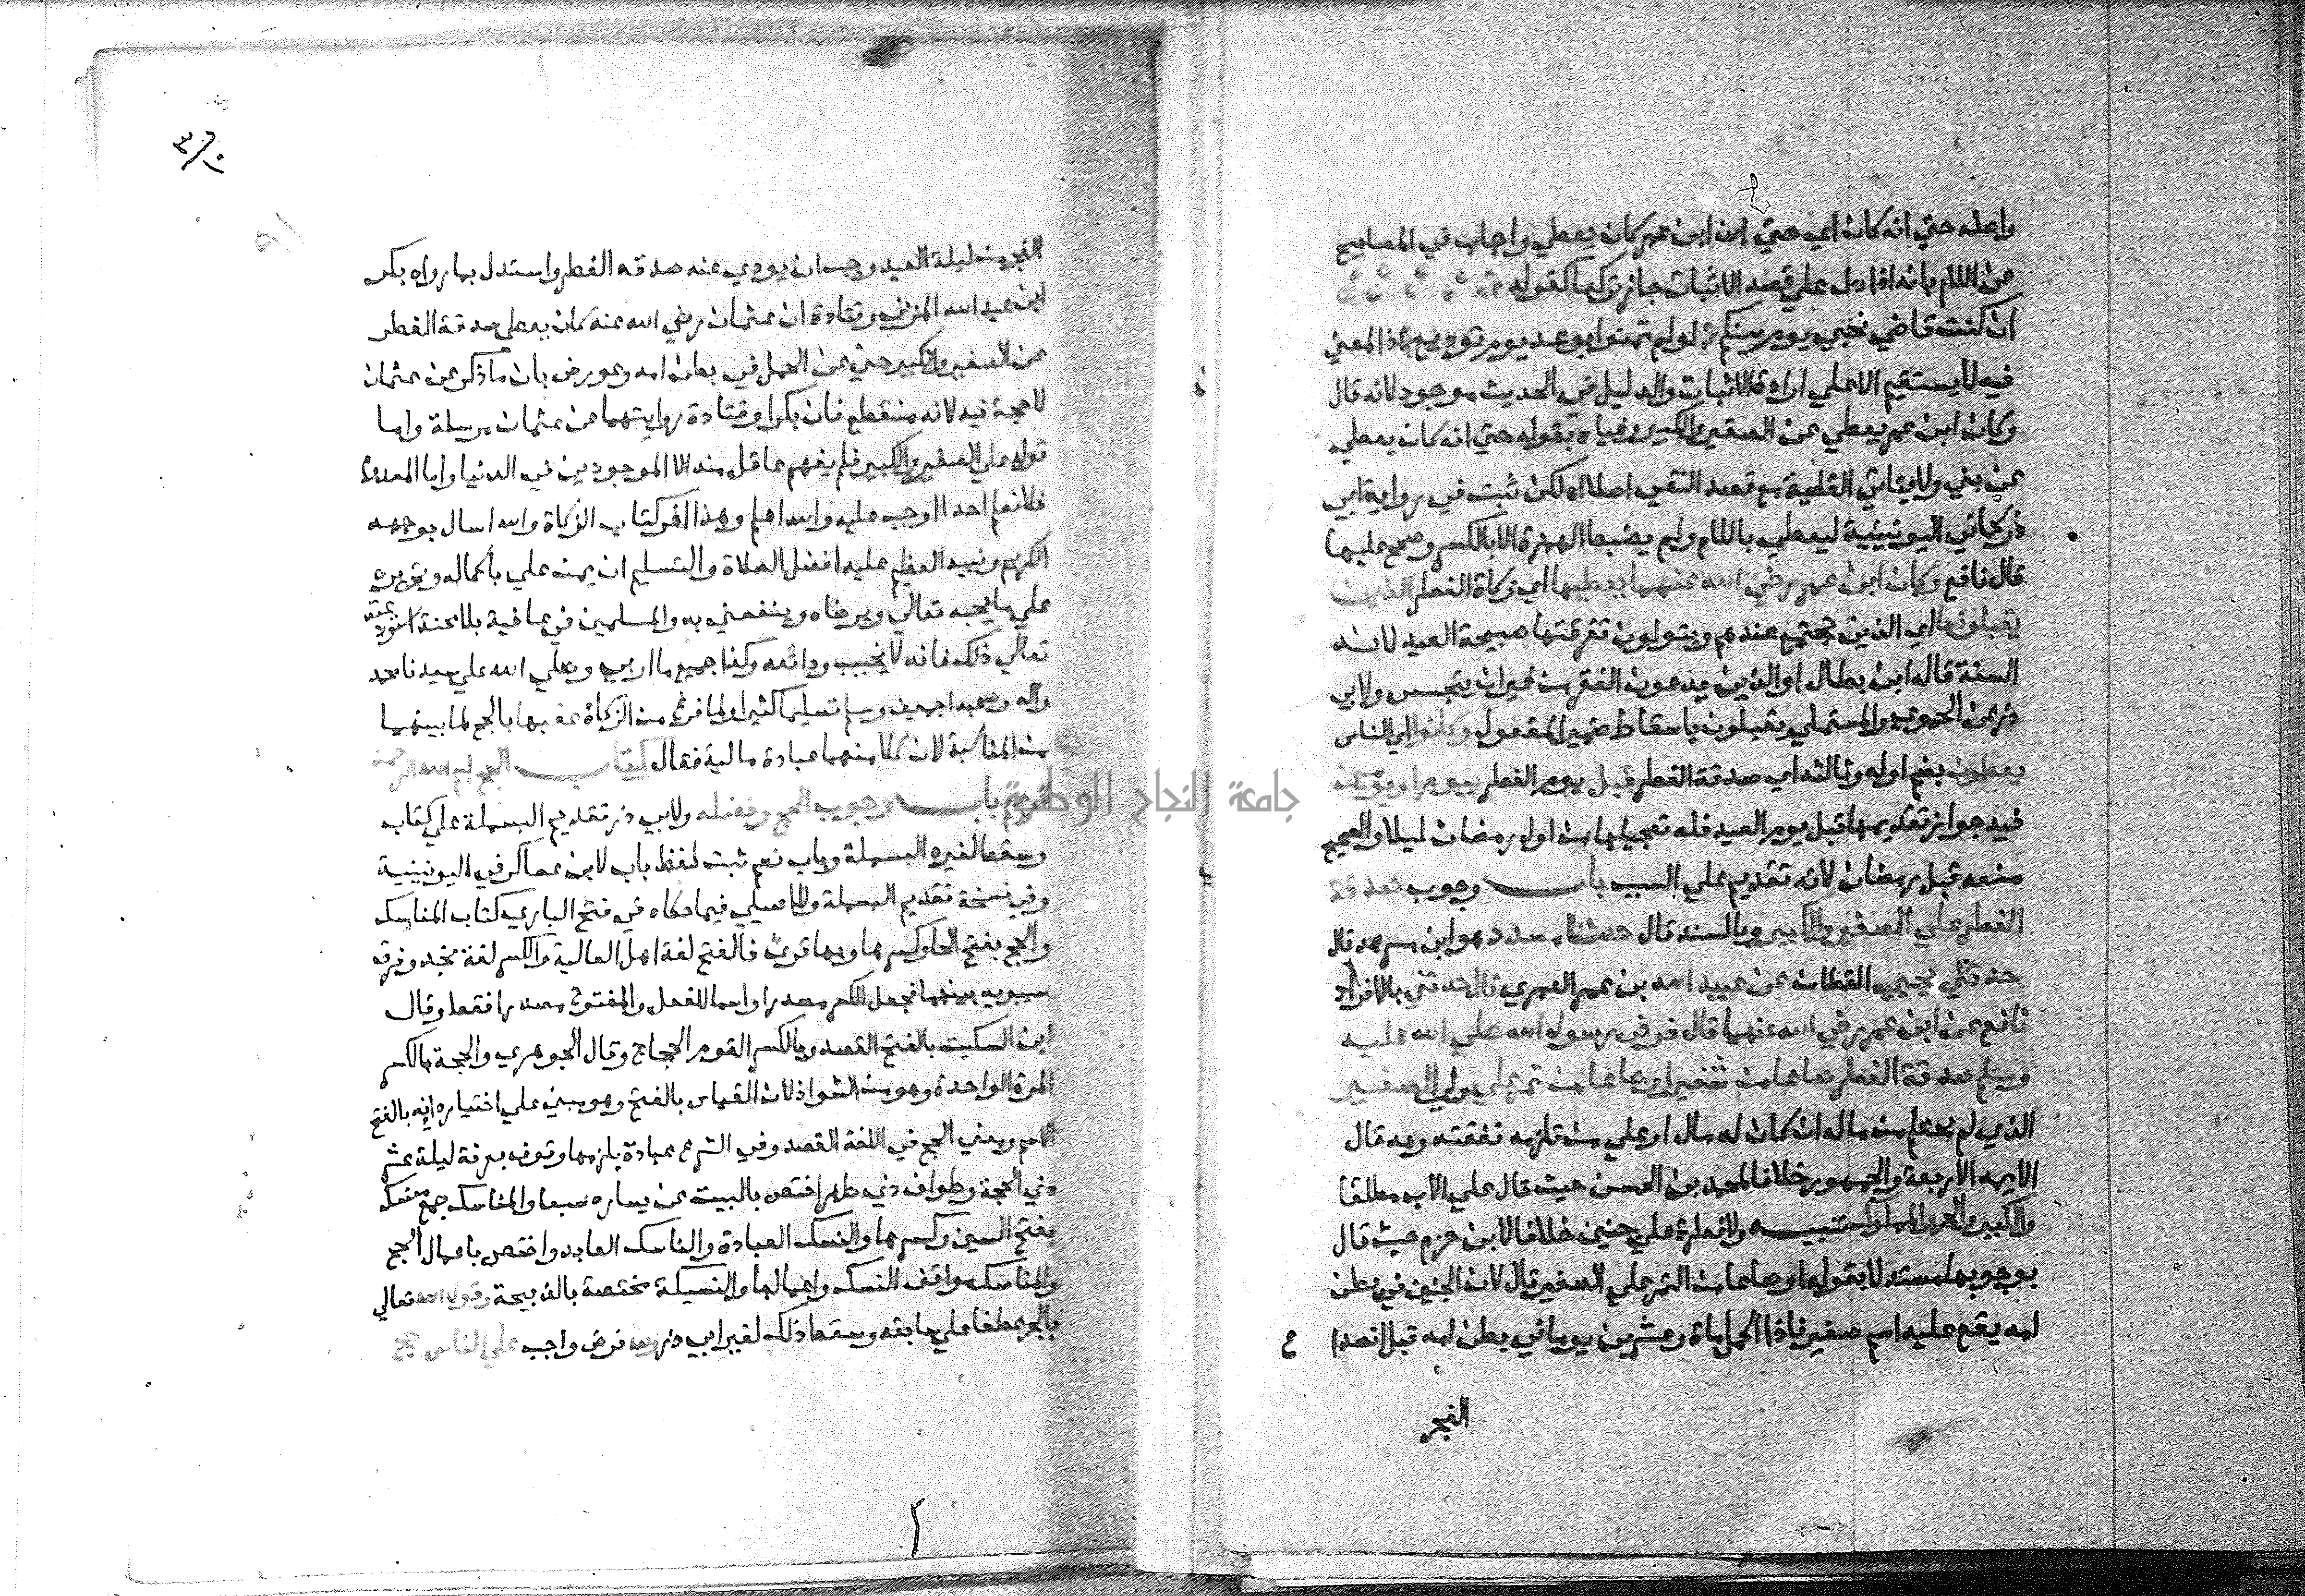 واصله حتي انه كان اي حتي ان ابن عمر كان يعطي واجاب في المصابيح
عن اللام بانه اذا دل علي قصد الاثبات جاز تركها كقوله
ان كنت قاضي نحبي يوم بينكم لو لم تمنوا بوعد يوم توديع اذ المعني
فيه لا يستقيم الا علي ارادة الاثبات والدليل في الحديث موجود لانه قال
وكان ابن عمر يعطي عن الصغير والكبير وغياه بقوله حتي انه كان يعطي
عن بني ولا ياتي الغاية مع قصد النفي اصلا اه لكن ثبت في رواية ابي
ذر كما في اليونينية ليعطي باللام ولم يضبط الهمزة الا بالكسر وصحح عليها
قال نافع وكان ابن عمر رضي الله عنهما يعطيها اي زكاة الفطر الذين
يقبلونها اي الذين تجتمع عندهم ويتولون تفرقتها صبيحة العيد لانه
السنة قاله ابن بطال او الذين يدعون الفقر من غير ان يتجسس ولابي
ذر عن الحموي والمستملي يقبلون باسقاط ضمير المفعول وكانوا اي الناس
يعطون بضم اوله وثالثه اي صدقة الفطر قبل يوم الفطر بيوم او يومين
فيه جواز تقديمها قبل يوم العيد فله تعجيلها من اول رمضان ليلا والصحيح
منعه قبل رمضان لانه تقديم علي السبب باب وجوب صدقة
الفطر علي الصغير والكبير وبالسند قال حدثنا مسدد هو ابن مسرهد قال
حدثني يحيي القطان عن عبيد الله بن عمر العمري قال حدثني بالافراد
نافع عن ابن عمر رضي الله عنهما قال فرض رسول الله صلي الله عليه
وسلم صدقة الفطر صاعا من شعير او صاعا من تمر علي ولي الصغير
الذي لم يحتلم من ماله ان كان له مال او علي من تلزمه نفقته وبه قال
الايمه الاربعة والجمهور خلافا لمحمد بن الحسن حيث قال علي الاب مطلقا
والكبير والحر والمملوك تنبيه ولا فطرة علي جنين خلافا لابن حزم حيث قال
بوجوبها مستدلا بقوله او صاعا من التمر علي الصغير قال لان الجنين في بطن
امه يقع عليه اسم صغير فاذا اكمل ماة وعشرين يوما في بطن امه قبل انصدا
ع
الفجر
الفجر من ليلة العيد وجب ان يودي عنه صدقه الفطر واستدل بما رواه بكر
ابن عبد الله المزني وقتادة ان عثمان رضي الله عنه كان يعطي صدقة الفطر
عن الصغير والكبير حتي عن الحمل في بطن امه وعورض بان ما ذكر عن عثمان
لا حجة فيه لانه منقطع فان بكرا وقتادة روايتهما عن عثمان مرسلة واما
قوله علي الصغير والكبير فلم يفهم عاقل منه الا الموجودين في الدنيا واما المعدوم
فلا نعلم احدا اوجب عليه والله اعلم وهذا اخر كتاب الزكاة والله اسال بوجهه
الكريم ونبيه العظيم عليه افضل الصلاة والتسليم ان يمن علي باكماله وتحريره
علي ما يحبه تعالي ويرضاه وينفعني به والمسلمين في عافية بلا محنة استودعته
تعالي ذلك فانه لا يخيب ودائعه وكذا جميع مااربي وصلي الله علي سيدنا محمد
واله وصحبه اجمعين وسلم تسليما كثيرا ولما فرغ من الزكاة عقبها بالحج لما بينهما
من المناسبة لان كلا منهما عبادة مالية فقال كتاب الحج بسم الله الرحمن
الرحيم باب وجوب الحج وفضله ولابي ذر تقديم البسملة علي كتاب
وسقط لغيره البسملة وباب نعم ثبت لفظ باب لابن عساكر في اليونينية
وفي نسخة تقديم البسملة وللاصيلي فيما حكاه في فتح الباري كتاب المناسك
والحج بفتح الحا وكسرها وبهما قرئ فالفتح لغة اهل العالية والكسر لغة نجد وفرق
سيبويه بينهما فجعل الكسر مصدرا واسما للفعل والمفتوح مصدرا فقط وقال
ابن السكيت بالفتح القصد وبالكسر القوم الحجاج وقال الجوهري والحجة بالكسر
المرة الواحدة وهو من الشواذ لان القياس بالفتح وهو مبني علي اختياره انه بالفتح
الاسم ومعني الحج في اللغة القصد وفي الشرع عبادة يلزمها وقوف بعرفة ليلة عشر
ذي الحجة وطواف ذي طهر اختص بالبيت عن يساره سبعا والمناسك جمع منسك
بفتح السين وكسرها والنسك العبادة والناسك العابد واختص باعمال الحج
والمناسك مواقف النسك واعمالها والنسيكة مختصة بالذبيحة وقول الله تعالي
بالجر عطفا علي سابقه وسقط ذلك لغير ابي ذر ولله فرض واجب علي الناس حج
جامعة النجاح الوطنية